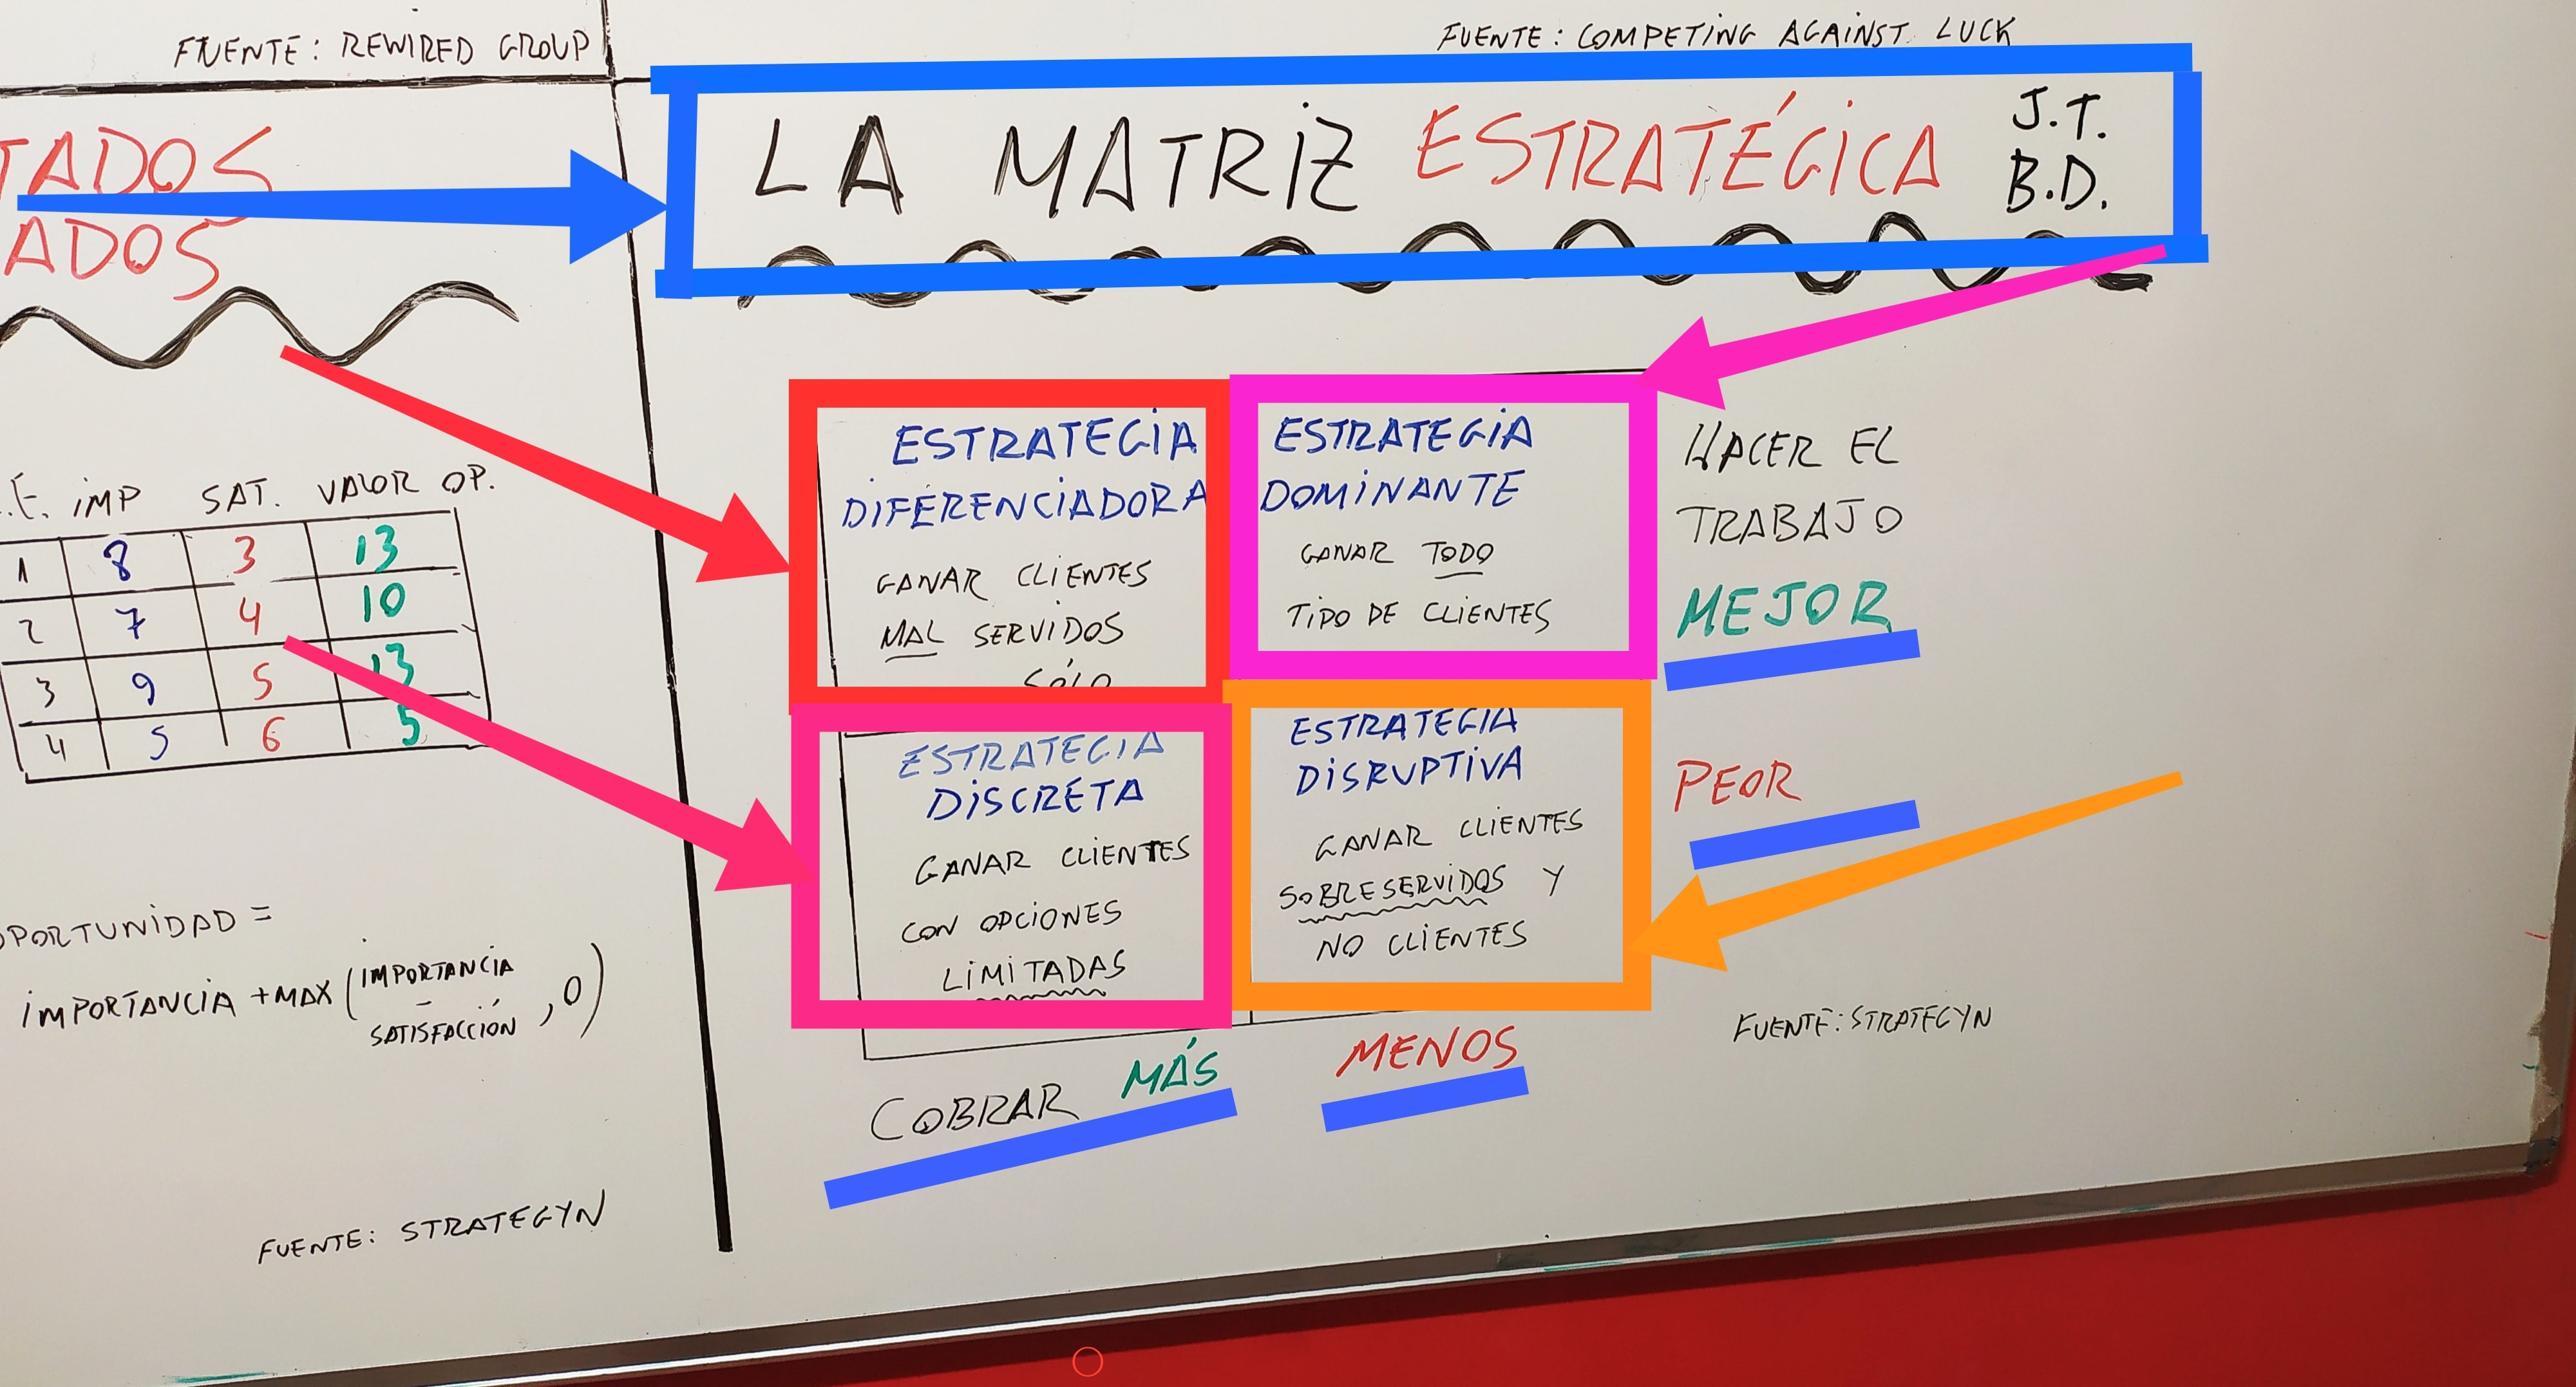 FUENTE: REWIRED GROUP
FUENTE: COMPETING AGAINST LUCK
TADOS
ADOS
.E. IMP SAT. VALOR OP.
1 8 3 13
2 7 4 10
3 9 5 13
4 5 6 5
OPORTUNIDAD =
IMPORTANCIA + MAX (IMPORTANCIA
-
SATISFACCIÓN , 0)
FUENTE: STRATEGYN
LA MATRIZ ESTRATÉGICA J.T.
B.D.
ESTRATEGIA
DIFERENCIADORA
GANAR CLIENTES
MAL SERVIDOS
SÓLO
ESTRATEGIA
DOMINANTE
GANAR TODO
TIPO DE CLIENTES
HACER EL
TRABAJO
MEJOR
ESTRATEGIA
DISCRETA
GANAR CLIENTES
CON OPCIONES
LIMITADAS
ESTRATEGIA
DISRUPTIVA
GANAR CLIENTES
SOBRESERVIDOS Y
NO CLIENTES
PEOR
COBRAR MÁS
MENOS
FUENTE: STRATEGYN